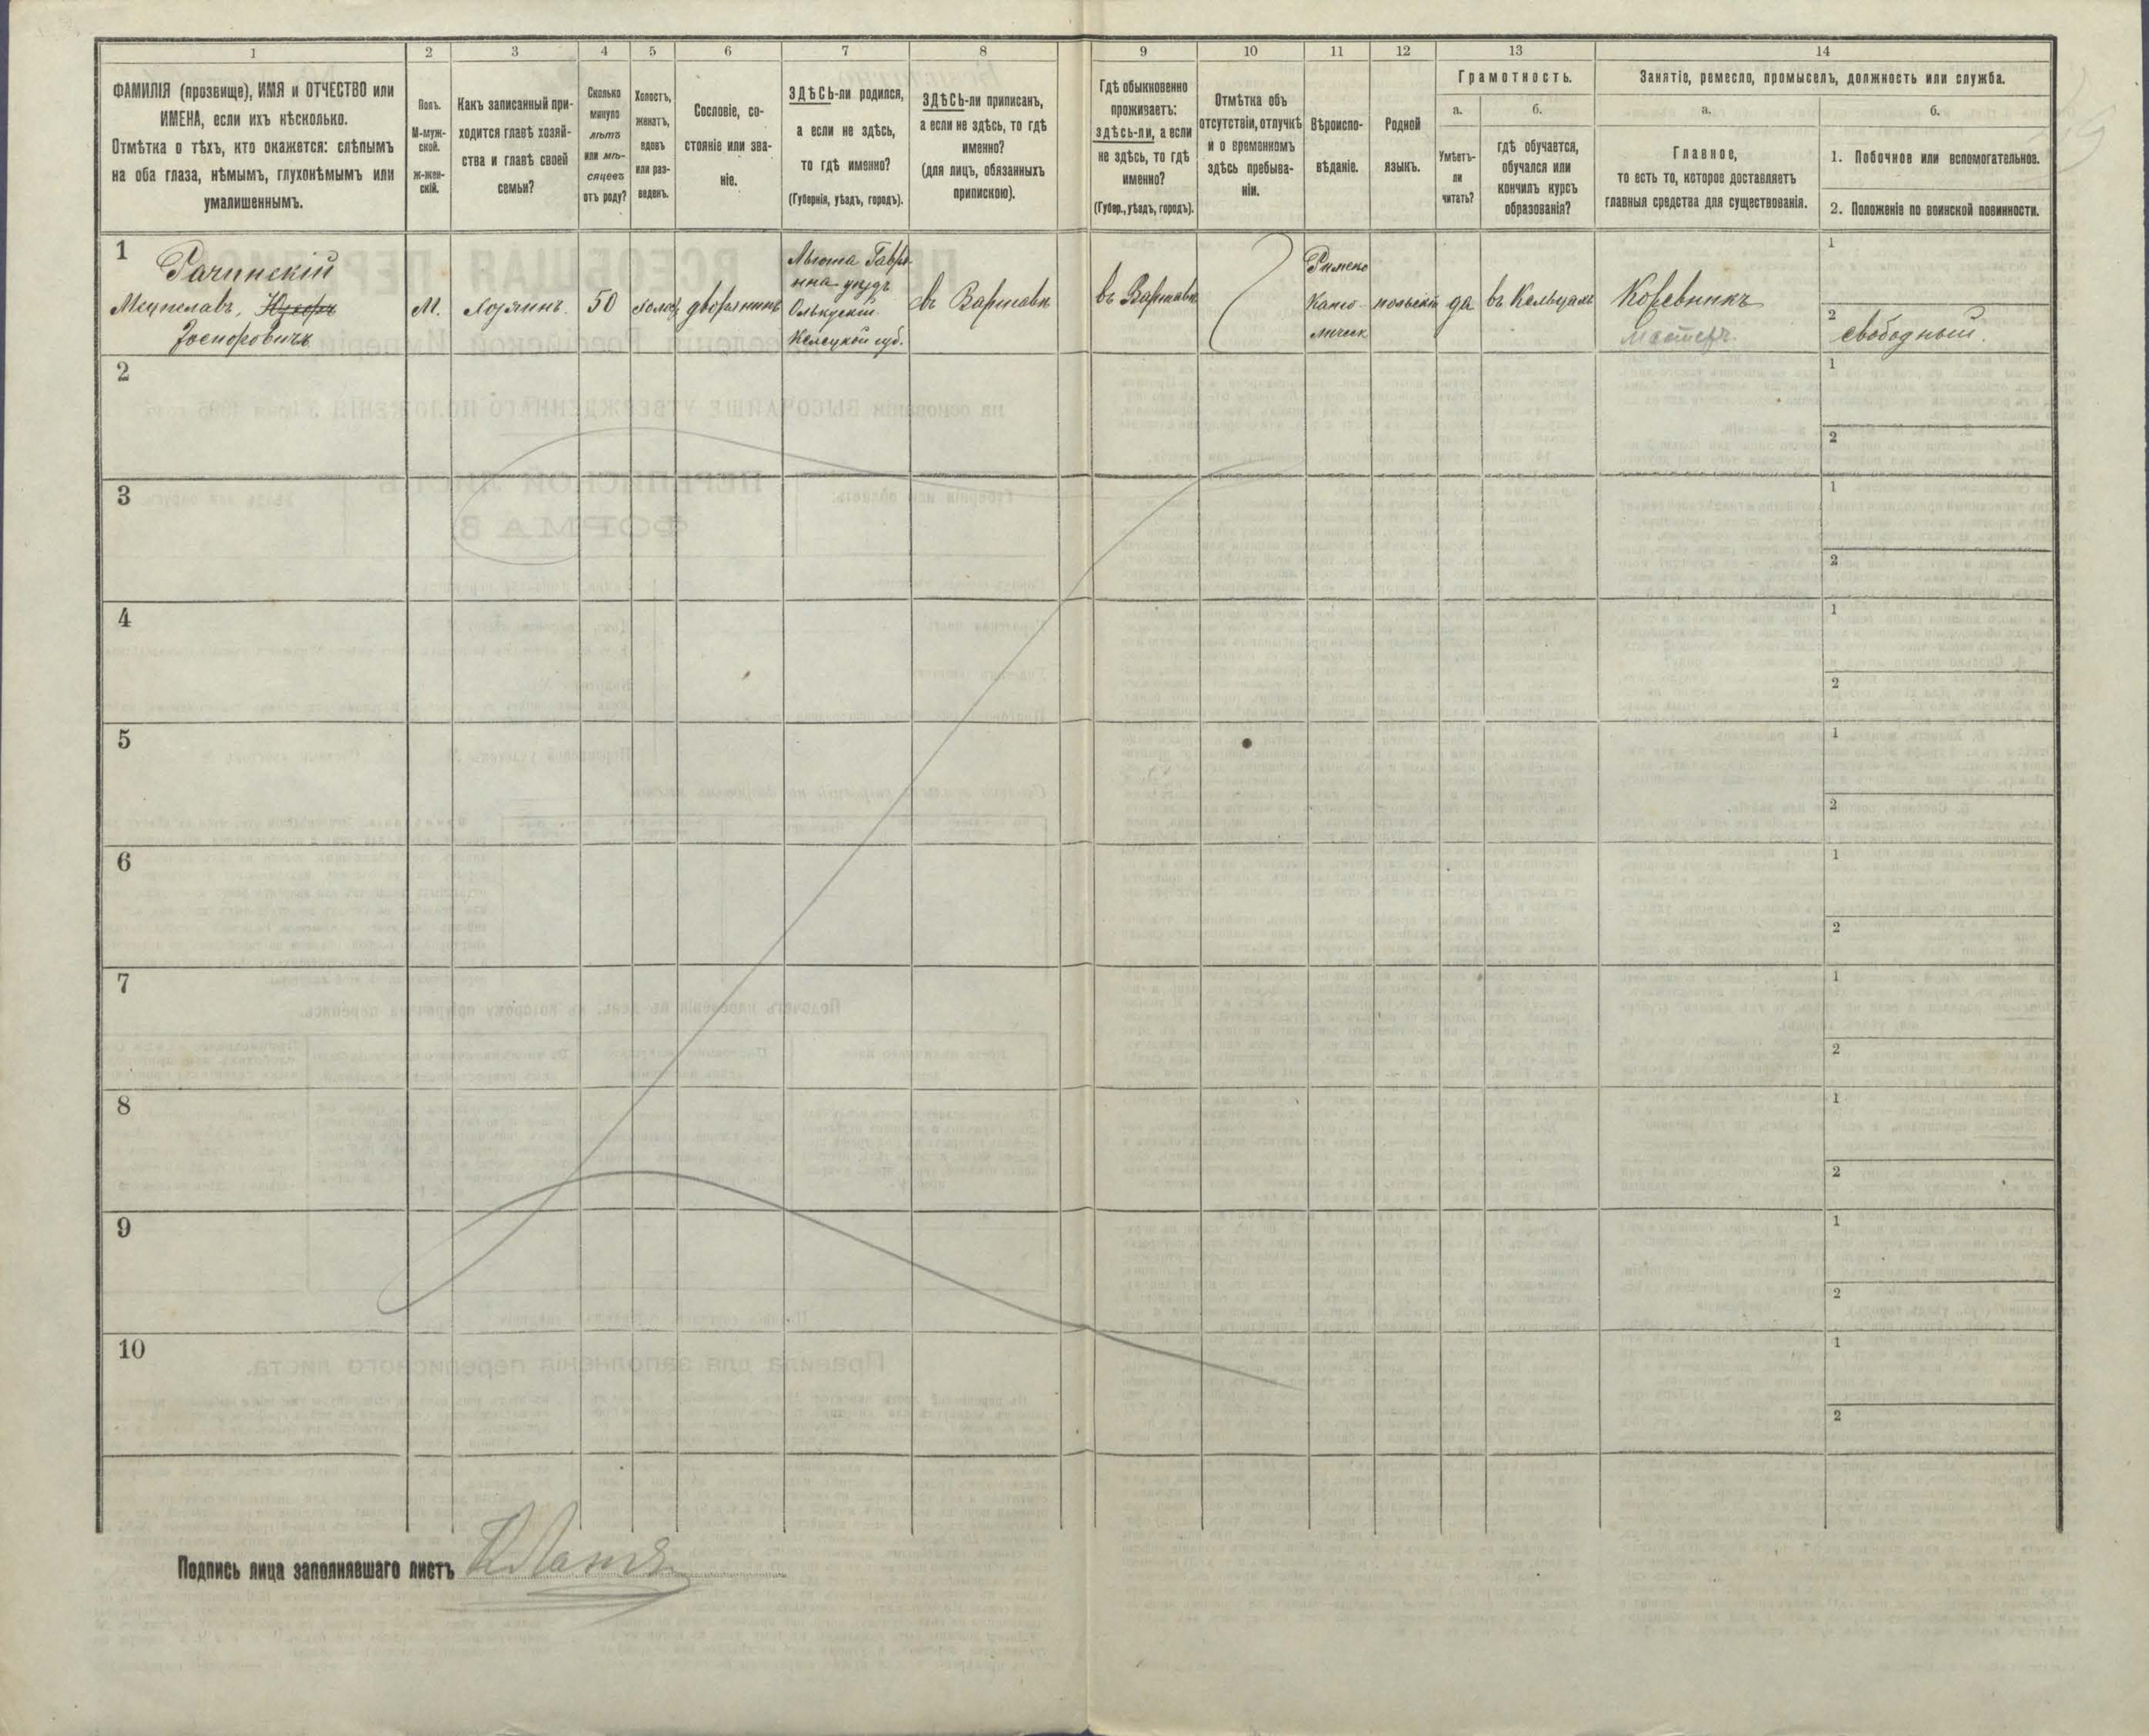 1 2 3 4 5 6 7 8 9 10 11 12 13 14
ФАМИЛІЯ (прозвище), ИМЯ и ОТЧЕСТВО или
ИМЕНА, если ихъ нѣсколько.
Отмѣтка о тѣхъ, кто окажется: слѣпымъ
на оба глаза, нѣмымъ, глухонѣмымъ или
умалишеннымъ.
Полъ.
М-муж-
ской.
ж-жен-
скій.
Какъ записанный при-
ходится главѣ хозяй-
ства и главѣ своей
семьи?
Сколько
минуло
лѣтъ
или мѣ-
сяцевъ
отъ роду?
Холостъ,
женатъ,
вдовъ
или раз-
веденъ.
Сословіе, со-
стояніе или зва-
ніе.
ЗДѢСЬ-ли родился,
а если не здѣсь,
то гдѣ именно?
(Губернія, уѣздъ, городъ).
ЗДѢСЬ-ли приписанъ,
а если не здѣсь, то гдѣ
именно?
(для лицъ, обязанныхъ
припискою).
Гдѣ обыкновенно
проживаетъ:
здѣсь-ли, а если
не здѣсь, то гдѣ
именно?
(Губер., уѣздъ, городъ).
Отмѣтка объ
отсутствіи, отлучкѣ
и о временномъ
здѣсь пребыва-
ніи.
Вѣроиспо-
вѣданіе.
Родной
языкъ.
Грамотность.
а.
Умѣетъ-
ли
читать?
б.
гдѣ обучается,
обучался или
кончилъ курсъ
образованія?
Занятіе, ремесло, промыселъ, должность или служба.
а.
Главное,
то есть то, которое доставляетъ
главныя средства для существованія.
б.
1. Побочное или вспомогательное.
2. Положеніе по воинской повинности.
1
Рачинскій
Мечиславъ, Юзефъ
Іосифовичъ
М.
хозяинъ.
50
холос.
дворянинъ
уѣздъ
Олькускій
Келецкой губ.
въ Варшавѣ
въ Варшавѣ
Римско
Като-
лическ
польскій
да
въ Кельцахъ
Коревникъ
мастеръ.
1
2
свободный.
2
1
2
3
1
2
4
1
2
5
1
2
6
1
2
7
1
2
8
1
2
9
1
2
10
1
2
Подпись лица заполнявшаго листъ